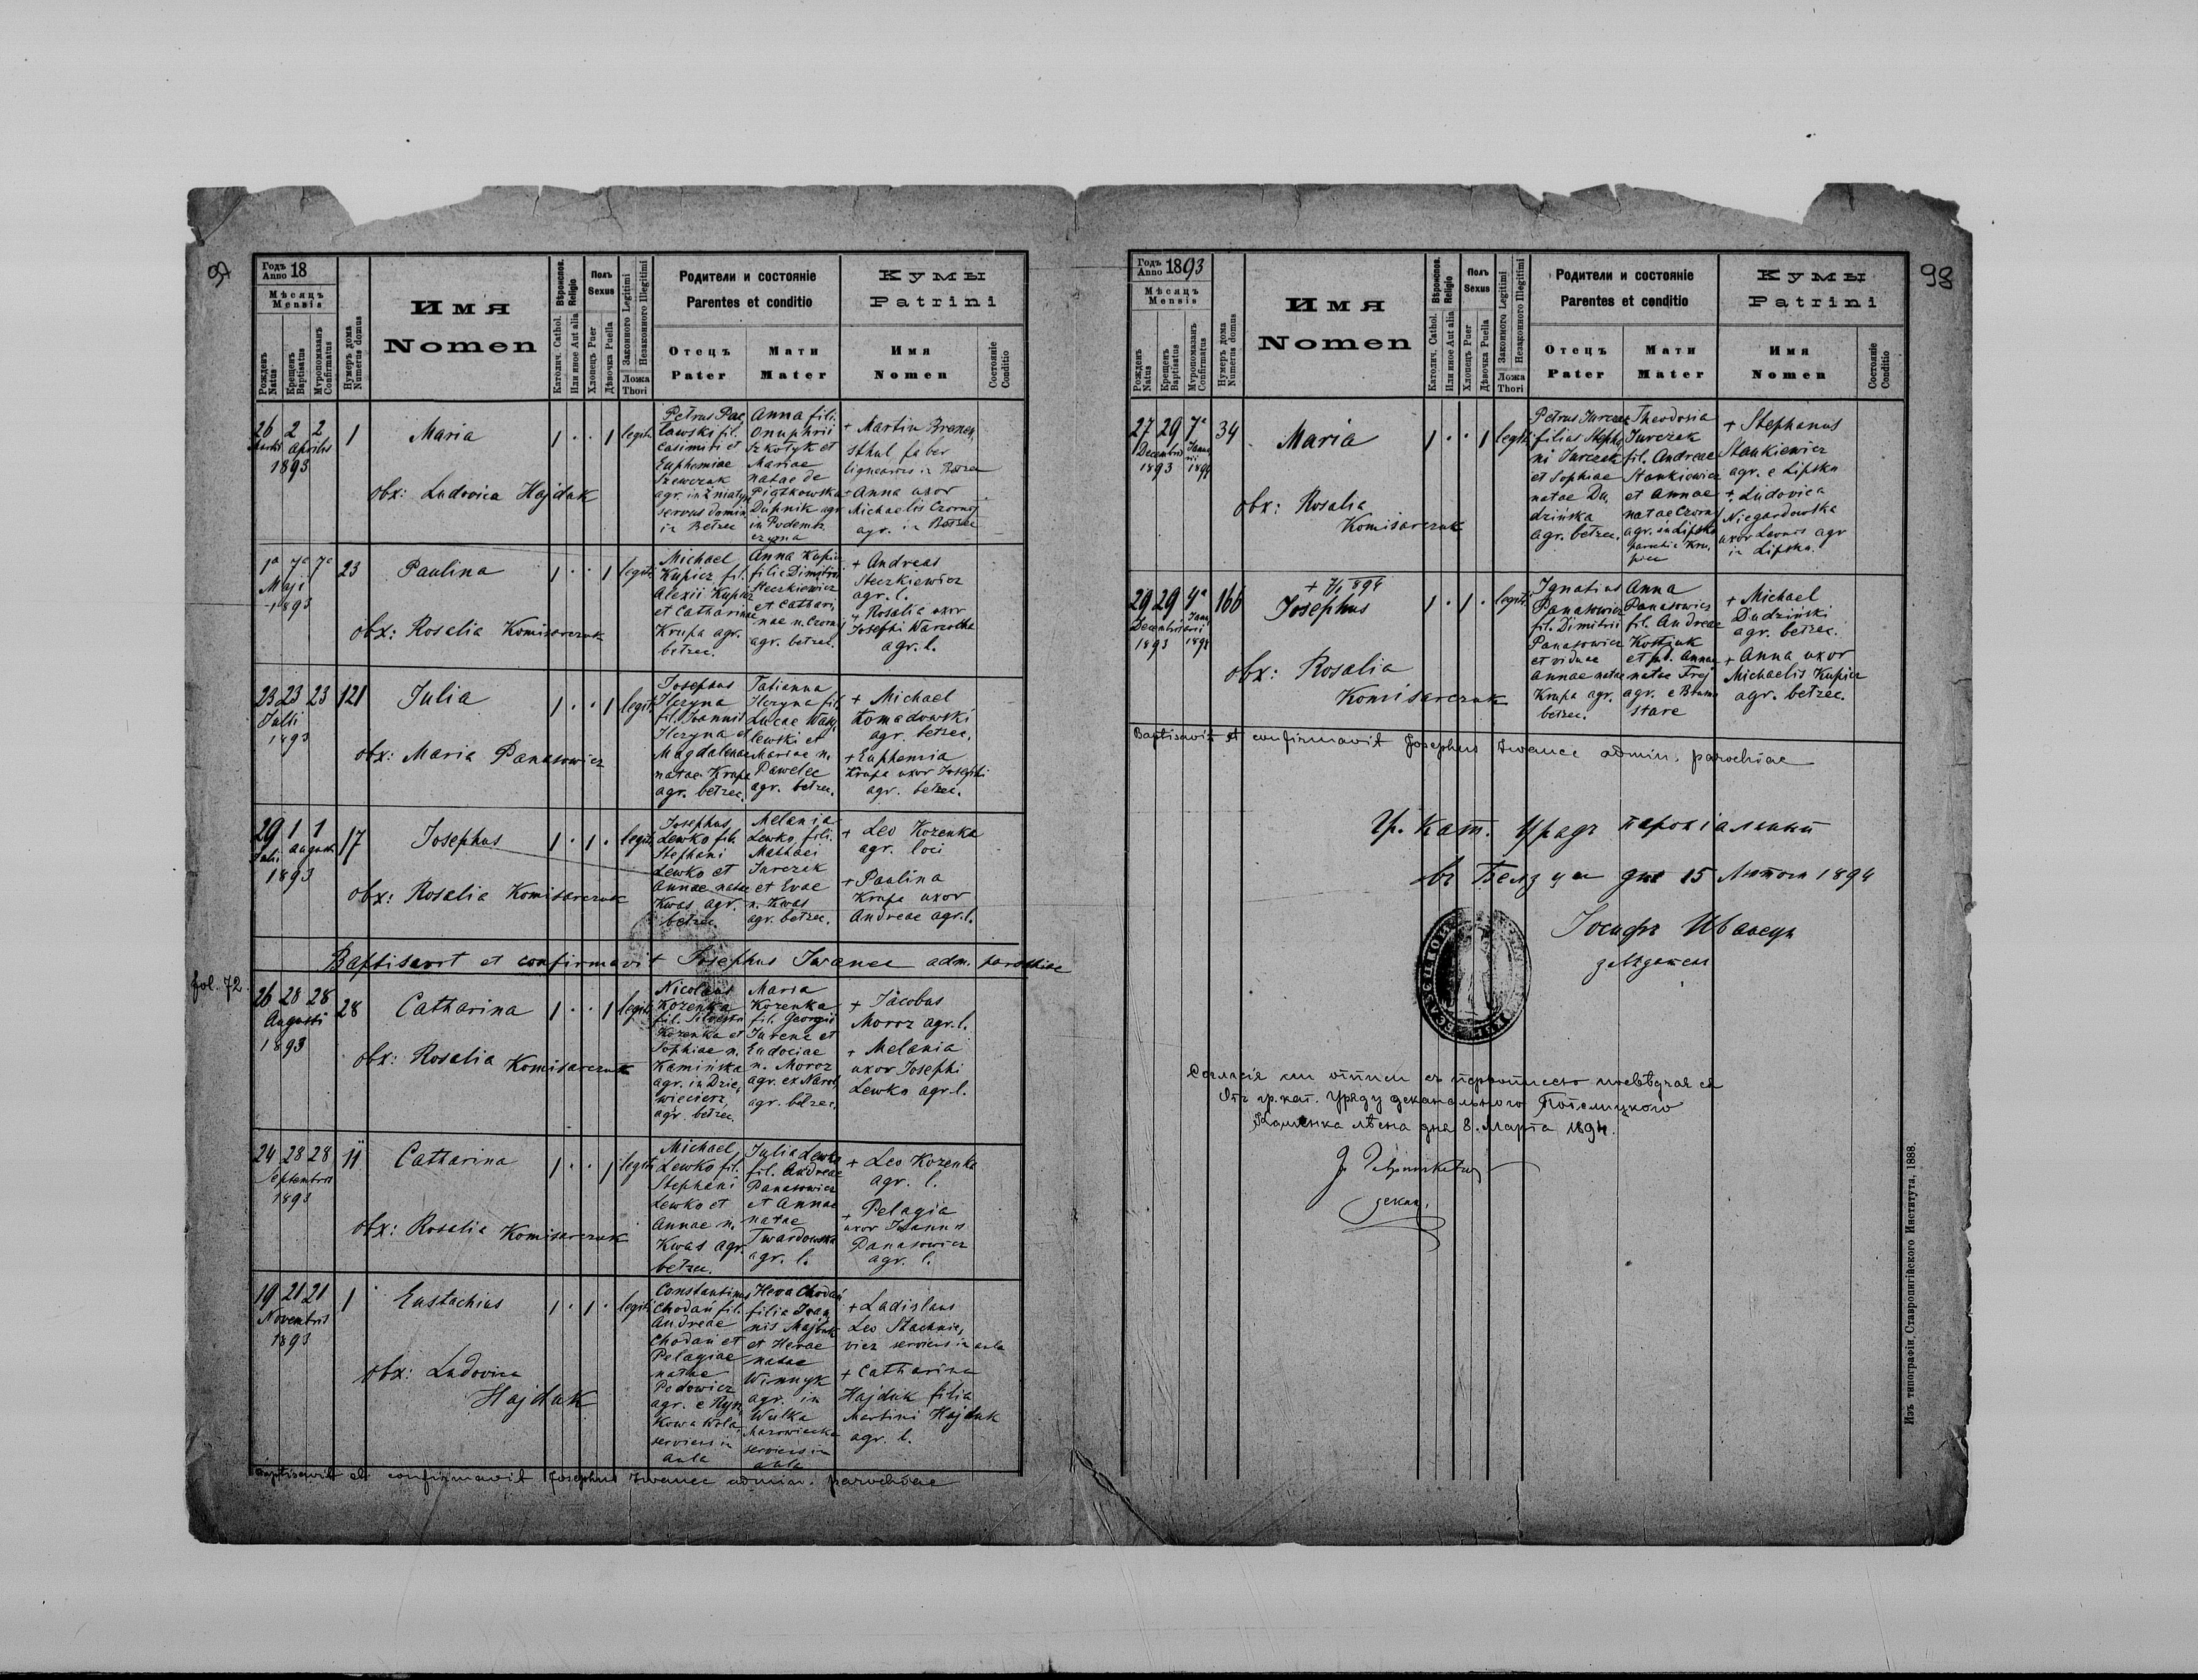 97
Годъ
Anno 18
Мѣсяцъ
Mensis
Рожденъ
Natus
Крещенъ
Baptisatus
Мѵропомазанъ
Confirmatus
Нумеръ дома
Numerus domus
Имя
Nomen
Вѣроиспов.
Religio
Католич. Cathol.
Или иное Aut alia
Полъ
Sexus
Хлопецъ Puer
Дѣвочка Puella
Законного Legitimi
Незаконного Illegitimi
Ложа
Thori
Родители и состояніе
Parentes et conditio
Отецъ
Pater
Мати
Mater
Кумы
Patrini
Имя
Nomen
Состояніе
Conditio
26 2 2
Martii Aprilis
1893
1
Maria
obx: Ludovica Hajduk
1 . . 1 legiti
Petrus Paw
lawski fil.
Casimiri et
Euphemiae
Szewczuk
agr. in
servus domin.
in Bełzec
Anna fili.
Onuphrii
et
Mariae
natae de
Piątkowska
Dupnik agr
in Podemsz
czyzna
+ Martin
faber
lignearius in Bełzec
+ Anna uxor
Michaelis Czornij
agr. in Bełzec
1a 7a 7a
Maji
1893
23
Paulina
obx: Rosalia Komisarczuk
1 . . 1 legiti
Michael
Kupicz fil.
Alexii Kupicz
et Catharinae
Krupa agr.
bełzec.
Anna Kupicz
filia Dimitrii
Steczkiewicz
et Cathari
nae n. Czornij
agr. bełzec.
+ Andreas
Steczkiewicz
agr. l.
+ Rosalia uxor
Josephi Warcołha
agr. l.
23 23 23
Julii
1893
121
Julia
obx: Maria Panasowicz
1 . . 1 legiti
Josephus
Ilczyna
fil. Joannis
Ilczyna et
Magdalenae
natae Krupa
agr. bełzec.
Tatianna
Ilczyna fil.
Lucae Wasy
lewski et
Mariae n.
Pawelec
agr. bełzec.
+ Michael
Komadowski
agr. bełzec.
+ Euphemia
Krupa uxor Josephi
agr. bełzec.
29 1 1
Julii August.
1893
17
Josephus
obx: Rosalia Komisarczuk
1 . 1 . legiti
Josephus
Lewko fil.
Stephani
Lewko et
Annae natae
Kwas agr.
bełzec
Melania
Lewko fili.
Mathaei
Jurczak
et Evae
n. Kwas
agr. bełzec.
+ Leo Kozenka
agr. loci
+ Paulina
Krupa uxor
Andreae agr. l.
Baptisavit et confirmavit Josephus Iwanec adm. parochiae
fol. 72.
26 28 28
Augusti
1893
28
Catharina
obx: Rosalia Komisarczuk
1 . . 1 legiti
Nicolaus
Kozenka
fil. Silvestri
Kozenka et
Sophiae n.
Kamińska
agr. in Dzie
więcierz
agr. bełzec.
Maria
Kozenka
fil. Georgii
Jurene et
Eudociae
n. Moroz
agr. ex Narol
agr. bełzec.
+ Jacobus
Moroz agr. l.
+ Melania
uxor Josephi
Lewko agr. l.
24 28 28
Septembris
1893
11
Catharina
obx: Rosalia Komisarczuk
1 . . 1 legiti
Michael
Lewko fil.
Stephani
Lewko et
Annae n.
Kwas agr.
bełzec.
Julia Lewko
fil. Andreae
Panasowicz
et Annae
natae
Twardowska
agr. l.
+ Leo Kozenka
agr. l.
+ Pelagia
uxor Joannis
Panasowicz
agr. l.
19 21 21
Novembris
1893
1
Eustachius
obx: Ludovica
Hajduk
1 . 1 . legiti
Constantinus
Chodań fil.
Andreae
Chodań et
Pelagiae
natae
Pedowicz
agr. e Ryn
kowa Wola
serviens in
aula
Heva Chodań
filia Joan
nis
et Hevae
natae
Winnyk
agr. in
Wulka
Mazowiecka
serviens in
aula
+ Ladislaus
Leo Stachnie
wicz serviens in aula
+ Catharina
Hajduk filia
Martini Hajduk
agr. l.
Baptisavit et confirmavit Josephus Iwanec admin. parochiae
98
Годъ
Anno 1893
Мѣсяцъ
Mensis
Рожденъ
Natus
Крещенъ
Baptisatus
Мѵропомазанъ
Confirmatus
Нумеръ дома
Numerus domus
Имя
Nomen
Вѣроиспов.
Religio
Католич. Cathol.
Или иное Aut alia
Полъ
Sexus
Хлопецъ Puer
Дѣвочка Puella
Законного Legitimi
Незаконного Illegitimi
Ложа
Thori
Родители и состояніе
Parentes et conditio
Отецъ
Pater
Мати
Mater
Кумы
Patrini
Имя
Nomen
Состояніе
Conditio
27 29 7a
Decembris Janua
rii
1893 1894
34
Maria
obx: Rosalia
Komisarczuk
1 . . 1 legiti
Petrus Jurczak
filius Stepha
ni Jurczak
et Sophiae
natae Du
dzińska
agr. bełzec.
Theodosia
Jurczak
fil. Andreae
Stankiewicz
et Annae
natae Czornij
agr. in Lipsko
parochia Kru
piec
+ Stephanus
Stankiewicz
agr. e Lipsko
+ Ludovica
Niegardowska
uxor Leonis agr
in Lipsko.
29 29 4a
Decembris Janu
arii
1893 1894
166
+ 7/1 894
Josephus
obx: Rosalia
Komisarczuk
1 . 1 . legiti
Ignatius
Panasowicz
fil. Dimitrii
Panasowicz
et viduae
Annae natae
Krupa agr.
bełzec.
Anna
Panasowicz
fil. Andreae
Kostjuk
et Annae
natae
agr. e Brusno
stare
+ Michael
Dudziński
agr. bełzec.
+ Anna uxor
Michaelis Kupicz
agr. bełzec.
Baptisavit et confirmavit Josephus Iwanec admin. parochiae
Гр. Кат. Урядъ парохіальный
въ Белзци дня 15 Лютого 1894
Іосифъ Иванецъ
завѣдатель
Согласія сеи отписи съ первописею посвѣдчае ся
Отъ гр. кат. Уряду деканального Потелицкого
Каменка лѣсна дня 8. Марта 1894.
декан.
Изъ типографіи Ставропигійского Института, 1888.